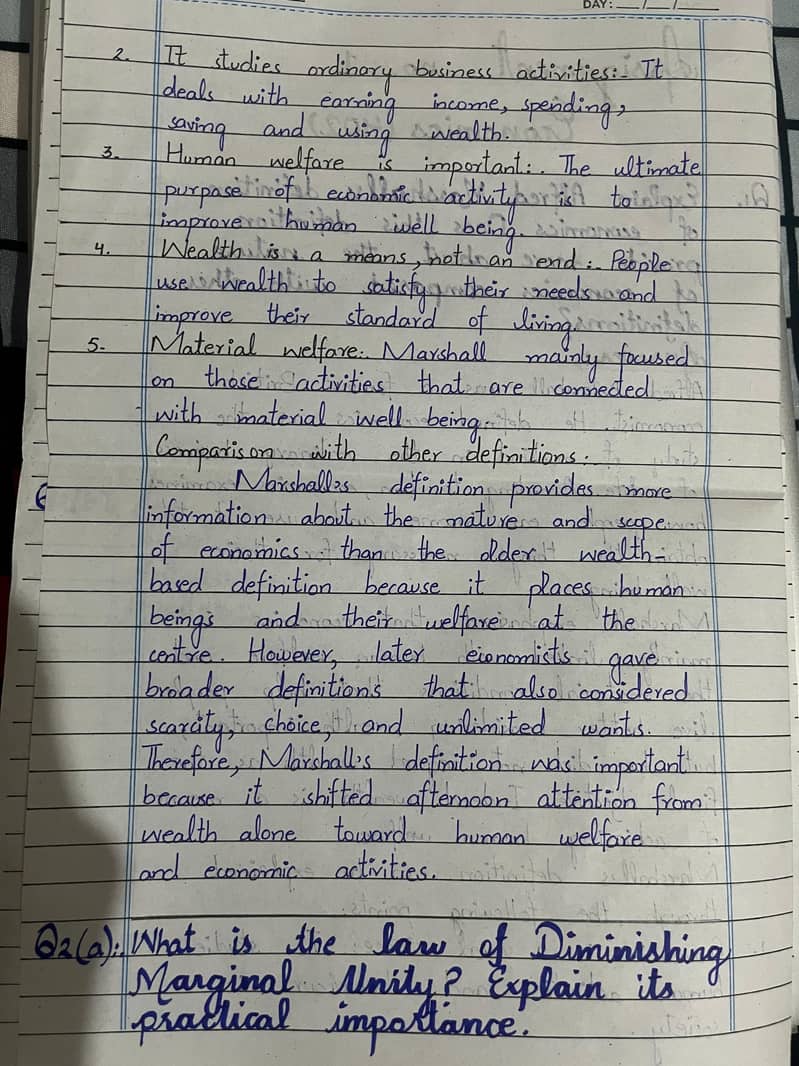 DAY: __/__/__
2. It studies ordinary business activities:- It
deals with earning income, spending,
saving and using wealth.
3. Human welfare is important:. The ultimate
purpase of economic activity is to
improve human well being.
4. Wealth is a means, not an end:. People
use wealth to satisfy their needs and
improve their standard of living.
5. Material welfare:. Marshall mainly focused
on those activities that are connected
with material well being.
Comparison with other definitions:
Marshall's definition provides more
information about the nature and scope
of economics than the older wealth-
based definition because it places human
beings and their welfare at the
centre. However, later economists gave
broader definitions that also considered
scarcity, choice, and unlimited wants.
Therefore, Marshall's definition was important
because it shifted afternoon attention from
wealth alone toward human welfare
and economic activities.
Q2(a):. What is the law of Diminishing
Marginal Unity? Explain its
practical importance.